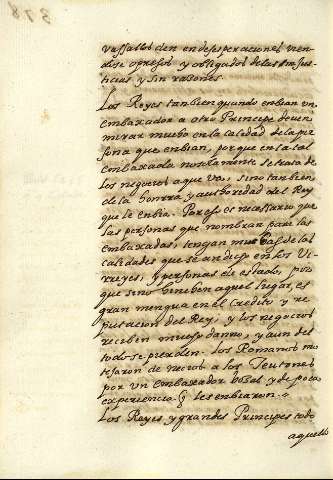 378
vassallos den en desesperaciones vien
dose opresos y obligados de las Injus
ticias y sin razones
Los Reyes tanbien quando enbian un
embaxador a otro Principe deven
mirar mucho en la calidad de la per
sona que enbian, porque en la tal
embaxada no solamente se trata de
los negocios a que va, sino tanbien
de la honrra y authoridad del Rey
que le enbia. Por esso es necessario que
las personas que nombran para las
embaxadas, tengan muchas de las
calidades que se an dicho en los Vi
rreyes, y personas de estado, por
que sino hinchen aquel lugar, es
gran mengua en el Credito y re
putacion del Rey; y los negocios
reciben mucho danno, y aun del
todo se pierden. Los Romanos mo
tejaron de necios a los Teutones
por un Embaxador boçal y de poca
experiencia q̃ les enbiaron.
Los Reyes y grandes Principes todo
aquello